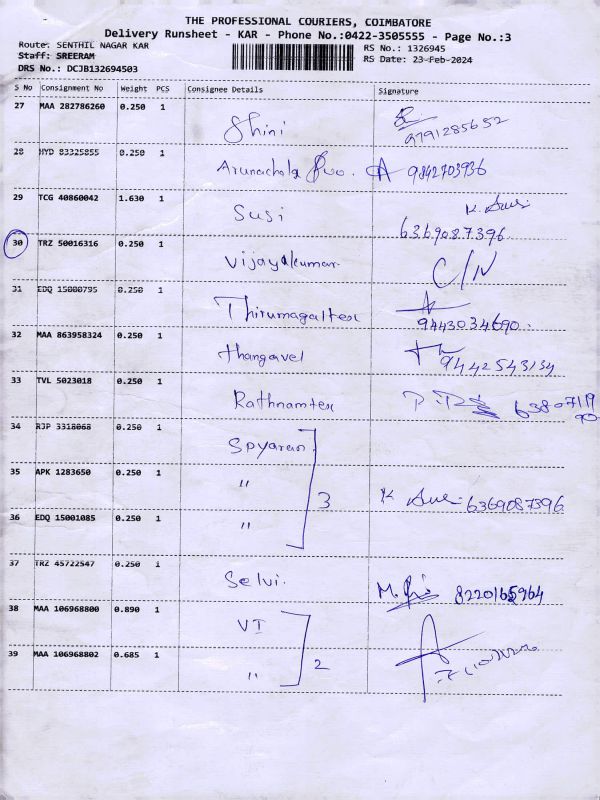 THE PROFESSIONAL COURIERS, COIMBATORE
Delivery Runsheet - KAR - Phone No.:0422-3505555 - Page No.:3
Route: SENTHIL NAGAR KAR
RS No.: 1326945
Staff: SREERAM
RS Date: 23-Feb-2024
DRS No.: DCJB132694503
S No Consignment No Weight PCS Consignee Details Signature
27 MAA 282786260 0.250 1 Shini 9791285652
28 HYD 83325855 0.250 1 Arunachala 9842703936
29 TCG 40860042 1.630 1 Susi 6369087396
30 TRZ 50016316 0.250 1 Vijayakumar C/N
31 EDQ 15000795 0.250 1 Thirumagaltex 9443034690
32 MAA 863958324 0.250 1 thangavel 9442543134
33 TVL 5023018 0.250 1 Rathnamtex
34 RJP 3318068 0.250 1
35 APK 1283650 0.250 1 " 3 6369087396
36 EDQ 15001085 0.250 1 "
37 TRZ 45722547 0.250 1 Selvi. 8220165964
38 MAA 106968800 0.890 1 VI
39 MAA 106968802 0.685 1 " 2